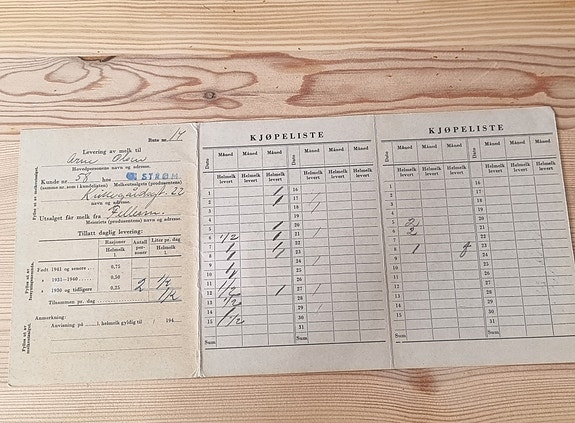 Rute nr. 14
Levering av melk til
Arne Olsen
Hovedpersonens navn og adresse.
Kunde nr. 58 hos STRØM.
(samme nr. som i kundelisten) Melkeutsalgets (produsentens)
22
navn og adresse.
Utsalget får melk fra
Meieriets (produsentens) navn og adresse.
Tillatt daglig levering:
Rasjoner Helmelk l.
Antall personer
Liter pr. dag Helmelk l.
Født 1941 og senere . . 0,75
» 1931-1940. . . . 0,50
» 1930 og tidligere 0,25 2 1/2
Tilsammen pr. dag 1/2
Anmerkning:
Anvisning på l. helmelk gyldig til / 194
Fylles ut av melkeutsalget.
KJØPELISTE
Dato Måned Måned Måned Dato Måned Måned Måned
Helmelk levert Helmelk levert Helmelk levert Helmelk levert Helmelk levert Helmelk levert
1 1 16
2 1 17
3 18
4 19
5 1 20
6 1/2 1 21
7 1 1 22
8 1 1 23
9 24
10 1 25
11 26
12 1 27
13 1/2 28
14 29
15 1/2 30
31
Sum Sum
KJØPELISTE
Dato Måned Måned Måned Dato Måned Måned Måned
Helmelk levert Helmelk levert Helmelk levert Helmelk levert Helmelk levert Helmelk levert
1 16
2 17
3 18
4 19
5 2 20
6 2 21
7 22
8 1 23
9 24
10 25
11 26
12 27
13 28
14 29
15 30
31
Sum Sum